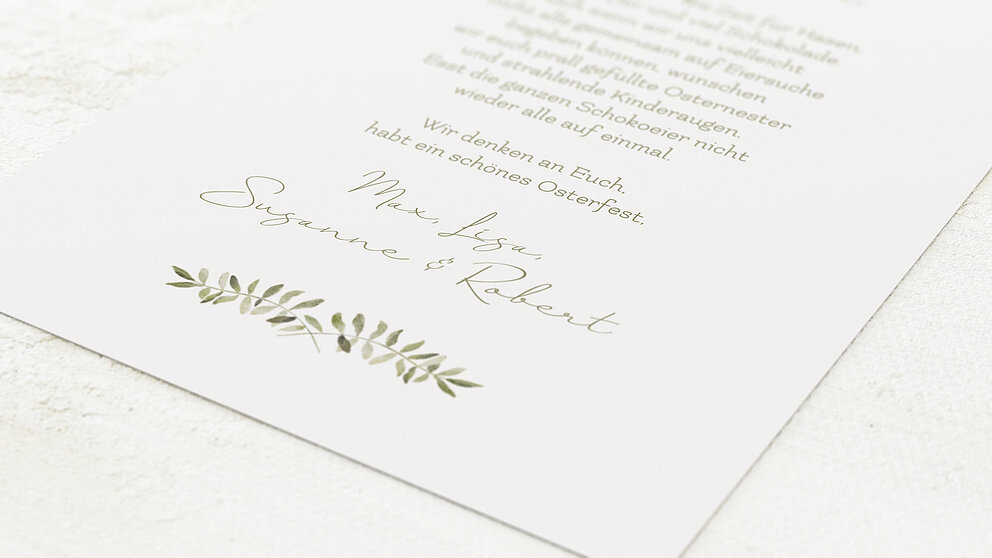 Zeit für Hasen,
und viel Schokolade.
wenn wir uns vielleicht
nicht alle gemeinsam auf Eiersuche
begeben können, wünschen
wir euch prall gefüllte Osternester
und strahlende Kinderaugen.
Esst die ganzen Schokoeier nicht
wieder alle auf einmal.
Wir denken an Euch,
habt ein schönes Osterfest,
Max, Lisa,
Susanne & Robert